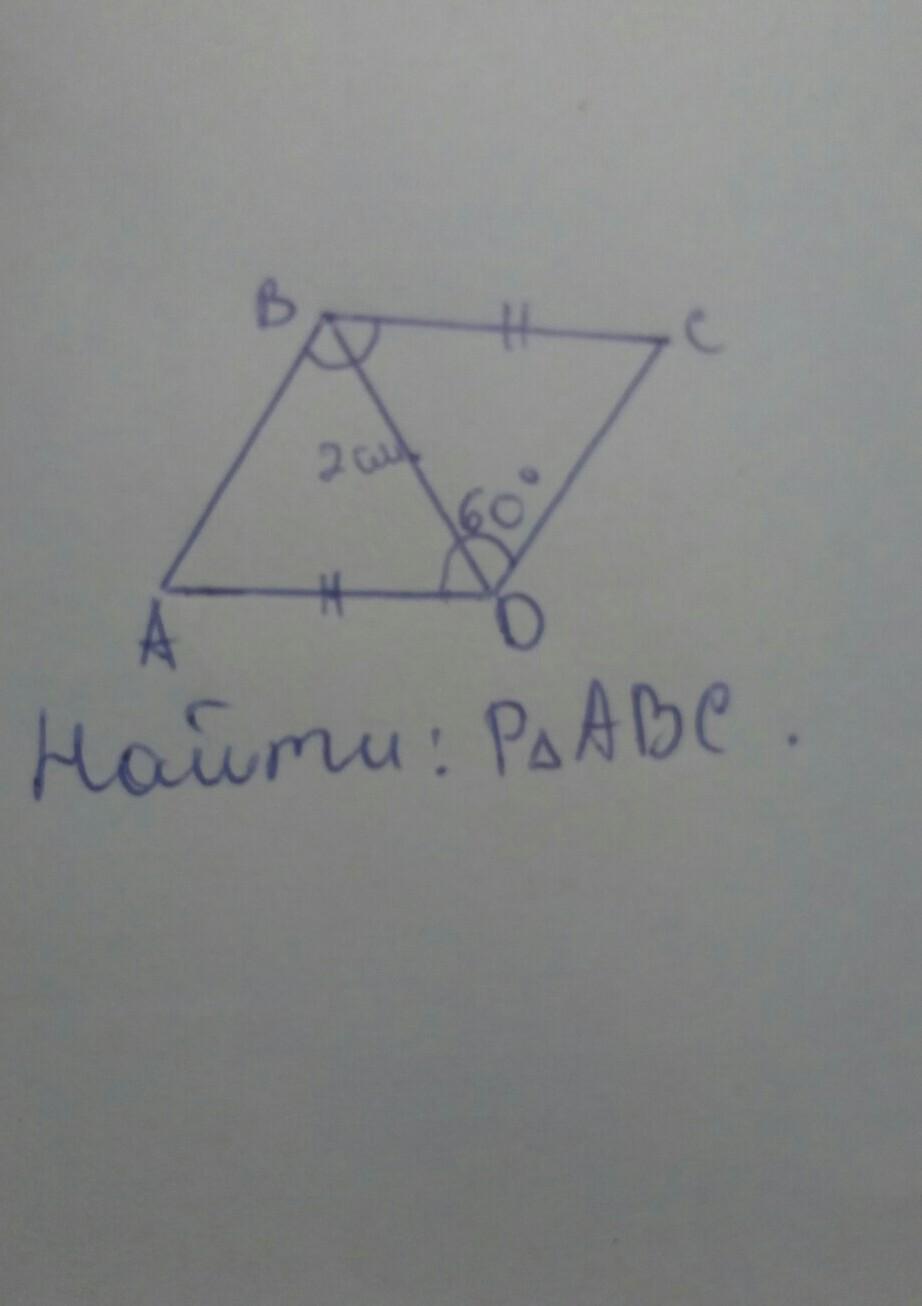 B
C
2см
60°
A
D
Найти: P△ABC.